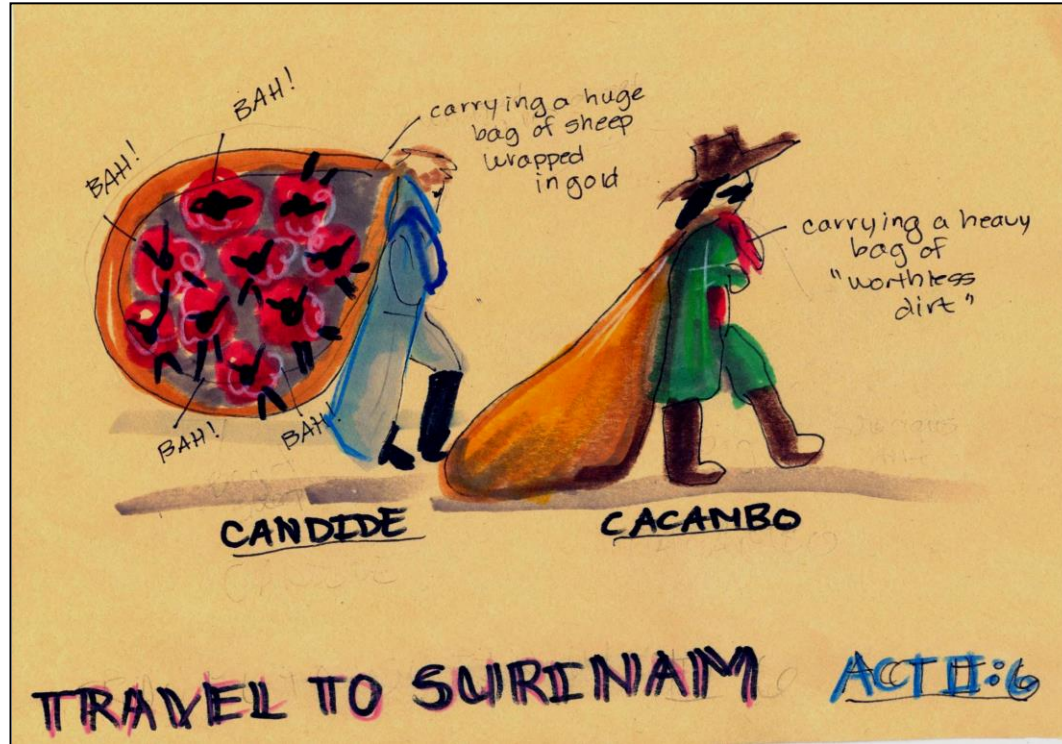 BAH!
BAH!
carrying a huge
bag of sheep
wrapped
in gold
carrying a heavy
bag of
"worthless
dirt"
BAH!
BAH!
CANDIDE
CACAMBO
TRAVEL TO SURINAM
ACT II:6